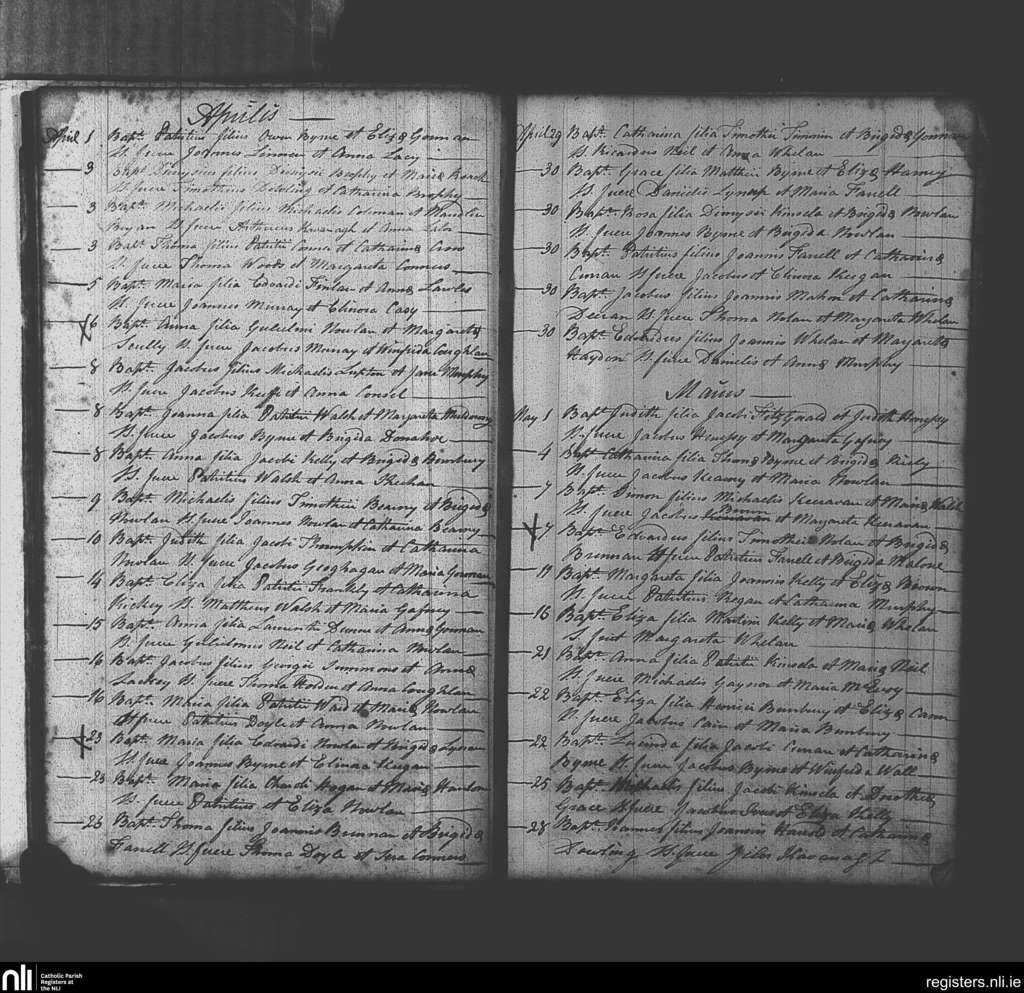 Aprilis
April 1 Bapt. Patritius filius Owen Byrne et Eliza Gorman
Sp. fuere Joannes et Anna Lacy
3 Bapt. Dionysius filius Dionysii Brophy et Maria Roach
Sp. fuere Timotheus Dowling et Catharina Brophy
3 Bapt. Michaelis filius Michaelis Coleman et
Bryan Sp. fuere Arthurus Kavanagh et Anna
3 Bapt. Thoma filius Patritii et Catharina
Sp. fuere Thoma Woods et Margareta Connors
5 Bapt. Maria filia Edvardi Finlan et Anna Lawles
Sp. fuere Joannis Murray et Elinora Casy
6 Bapt. Anna filia Gulielmi Nowlan et Margareta
Scully Sp. fuere Jacobus Murray et Winifrida Coughlan
8 Bapt. Jacobus filius Michaelis Lupton et Jane Murphy
Sp. fuere Jacobus Keeffe et Anna
8 Bapt. Joanna filia Patritii Walsh et Margareta Muldowny
Sp. fuere Jacobus Byrne et Brigida Donahoe
8 Bapt. Anna filia Jacobi Kelly et Brigida Bunbury
Sp. fuere Patritius Walsh et Anna
9 Bapt. Michaelis filius Timothii Bearny et Brigida
Nowlan Sp. fuere Joannes Nowlan et Catharina Bearny
10 Bapt. Judith filia Jacobi Thompkin et Catharina
Nowlan Sp. fuere Jacobus Geoghagan et Maria Gorman
14 Bapt. Eliza filia Patritii et Catharina
Hickey Sp. Mattheus Walsh et Maria Gafney
15 Bapt. Anna filia Laurentii et Anna Gorman
Sp. fuere Gulielmus Neil et Catharina Nowlan
16 Bapt. Jacobus filius Georgii Simmons et Anna
Lackey Sp. fuere Thoma et Anna Coughlan
16 Bapt. Maria filia Patritii Ward et Maria Nowlan
Sp. fuere Patritius Doyle et Anna Nowlan
23 Bapt. Maria filia Edvardi Nowlan et Brigida
Sp. fuere Joannes Byrne et Elinora Keegan
23 Bapt. Maria filia Hogan et Maria Hanlon
Sp. fuere Patritius et Eliza Nowlan
26 Bapt. Thoma filius Joannis Brennan et Brigida
Farrell Sp. fuere Thoma Doyle et Sera Connors
April 29 Bapt. Catharina filia Timothii et Brigida Gorman
Sp. Ricardus Neil et Anna Whelan
30 Bapt. Grace filia Matthii Byrne et Eliza Harvey
Sp. fuere Danielis et Maria Farrell
30 Bapt. Rosa filia Dionysii Kinsela et Brigida Nowlan
Sp. fuere Joannes Byrne et Brigida Nowlan
30 Bapt. Patritius filius Joannis Farrell et Catharina
Curran Sp. fuere Jacobus et Elinora Keegan
30 Bapt. Jacobus filius Joannis Mahon et Catharina
Sp. fuere Thoma Nolan et Margareta Whelan
30 Bapt. Edvardus filius Joannis Whelan et Margareta
Haydon Sp. fuere Danielis et Anna Murphy
Maius
May 1 Bapt. Judith filia Jacobi FitzGerald et Judith Hempsy
Sp. fuere Jacobus Hempsy et Margareta Gafney
4 Bapt. Catharina filia Thoma Byrne et Brigida Kirby
Sp. fuere Jacobus Kearny et Maria Nowlan
7 Bapt. Simon filius Michaelis Keenavan et Maria Walsh
Sp. fuere Jacobus et Margareta Keenavan
7 Bapt. Edvardus filius Timothii Nolan et Brigida
Brennan Sp. fuere Patritius Farrell et Brigida Malone
11 Bapt. Margareta filia Joannis Kelly et Eliza Brown
Sp. fuere Patritius Hegan et Catharina Murphy
16 Bapt. Eliza filia Martini Kelly et Maria Whelan
S. fuit Margareta Whelan
21 Bapt. Anna filia Patritii Kinsela et Maria Neil
Sp. fuere Michaelis Gaynor et Maria McEvoy
22 Bapt. Eliza filia Henrici Bunbury et Eliza
Sp. fuere Jacobus Cain et Maria Bunbury
22 Bapt. Lucinda filia Jacobi Curran et Catharina
Byrne Sp. fuere Jacobus Byrne et Winifrida Wall
25 Bapt. Michaelis filius Jacobi Kinsela et Dorothea
Grace Sp. fuere Jacobus et Eliza Kelly
28 Bapt. Joannes filius Joannis et Catharina
Dowling Sp. fuere Kavanagh
nli
Catholic Parish
Registers at
the NLI
registers.nli.ie